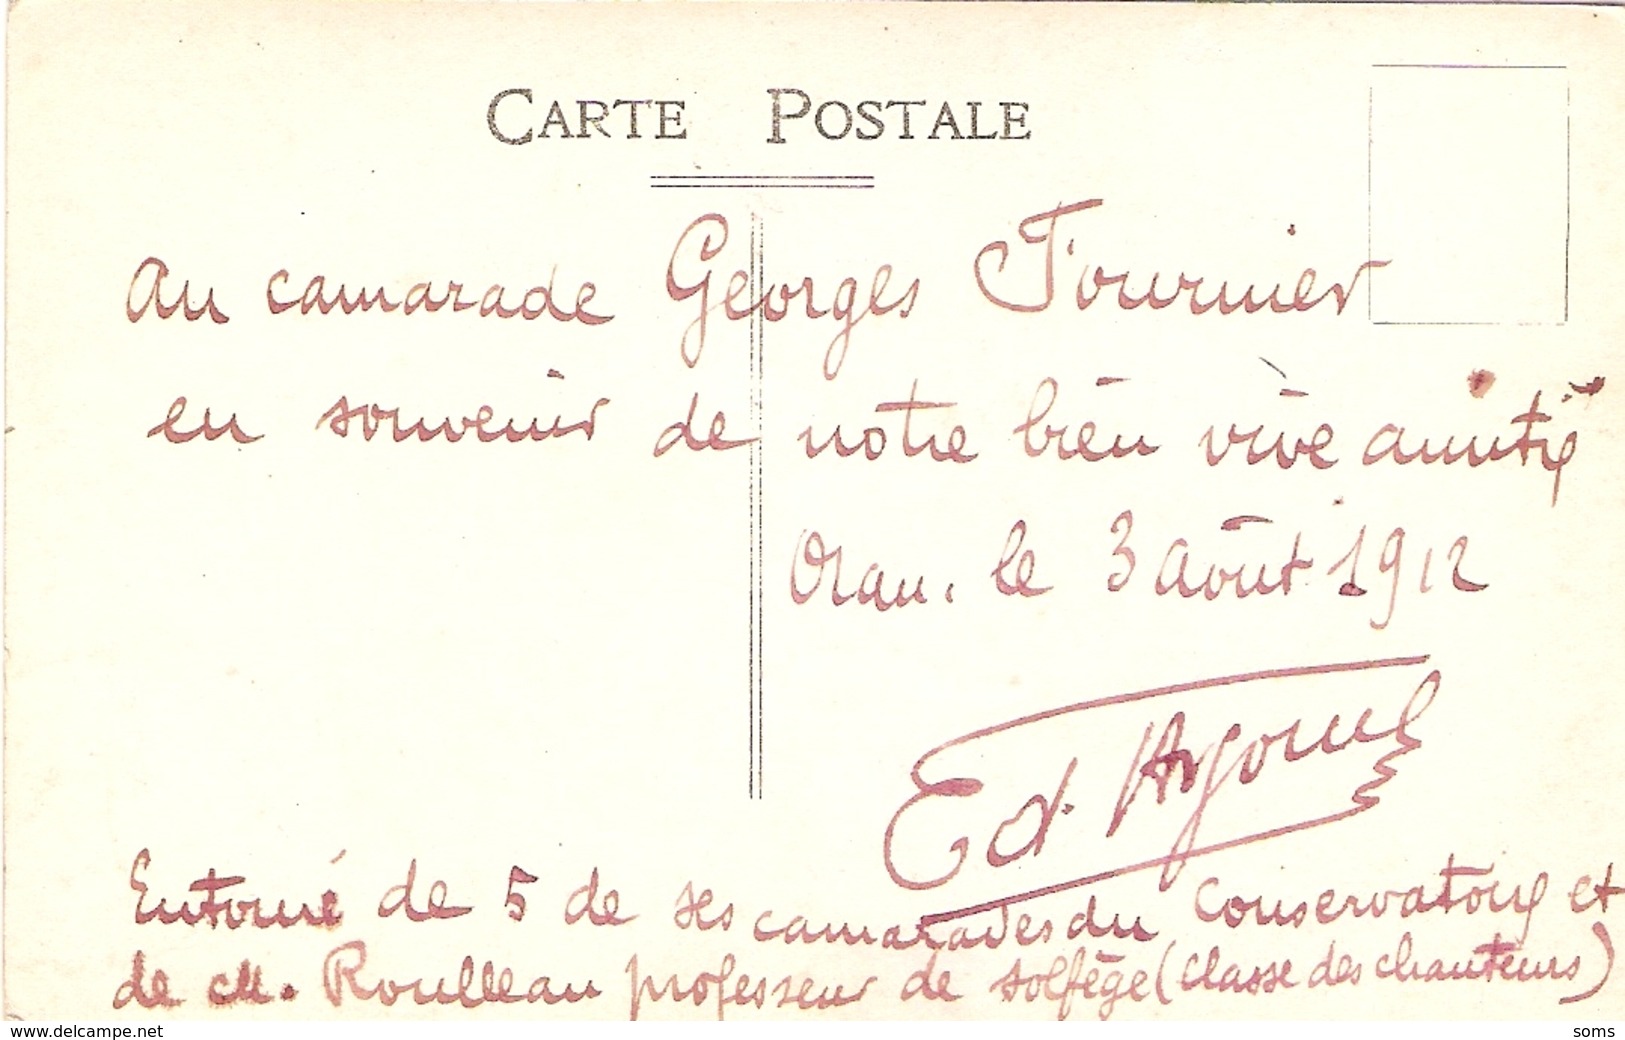 CARTE POSTALE
Au camarade Georges Fournier
en souvenir de notre bien vive amitié
Oran. le 3 août 1912
Ed.
Entouré de 5 de ses camarades du Conservatoire et
de M. Roulleau professeur de solfège (Classe des chanteurs)
www.delcampe.net
soms